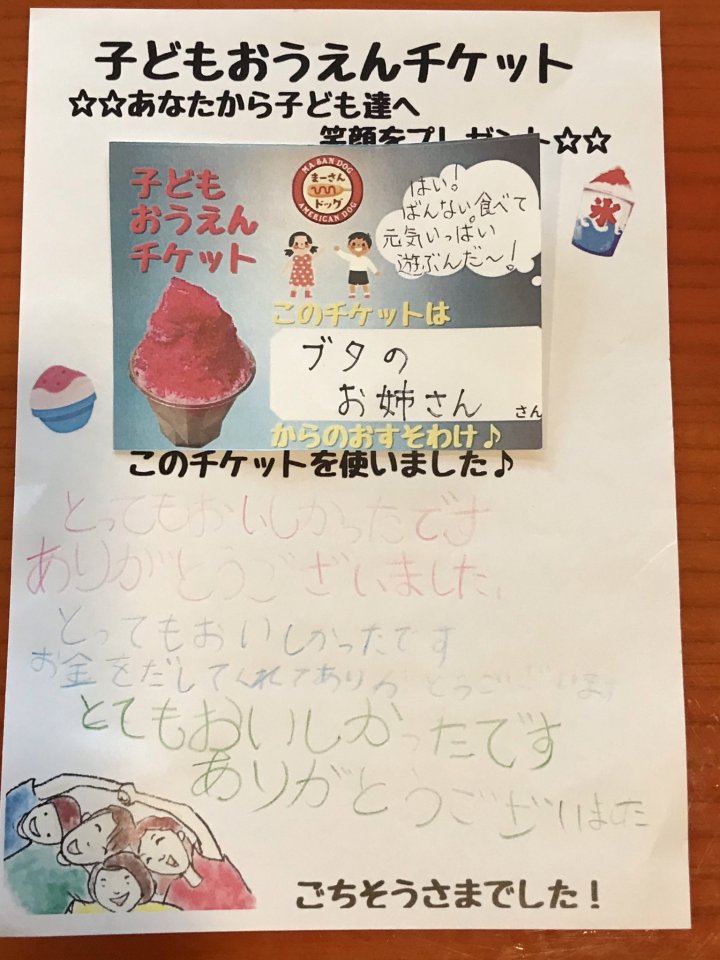 子どもおうえんチケット
☆☆あなたから子ども達へ
笑顔をプレゼント☆☆
子ども
おうえん
チケット
MA SAN DOG
まーさん
ドッグ
AMERICAN DOG
はい!
ばんない食べて
元気いっぱい
遊ぶんだ〜!
氷
このチケットは
ブタの
お姉さん
さん
からのおすそわけ♪
このチケットを使いました♪
とってもおいしかったです
ありがとうございました。
とってもおいしかったです
お金をだしてくれてありがとうございます
とてもおいしかったです
ありがとうございました
ごちそうさまでした!